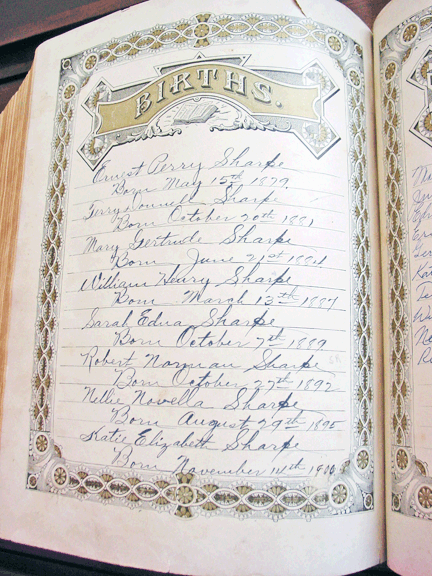 BIRTHS.
Ernest Perry Sharpe
Born May 15th 1879
Sharpe
Born October 20th 1881
Mary Gertrude Sharpe
Born June 21st
William Henry Sharpe
Born March 13th 1887
Sarah Edna Sharpe
Born October 7th 1889
Robert Norman Sharpe
Born October 27th 1892
Nellie Novella Sharpe
Born August 29th 1895
Katie Elizabeth Sharpe
Born November 14th 1900